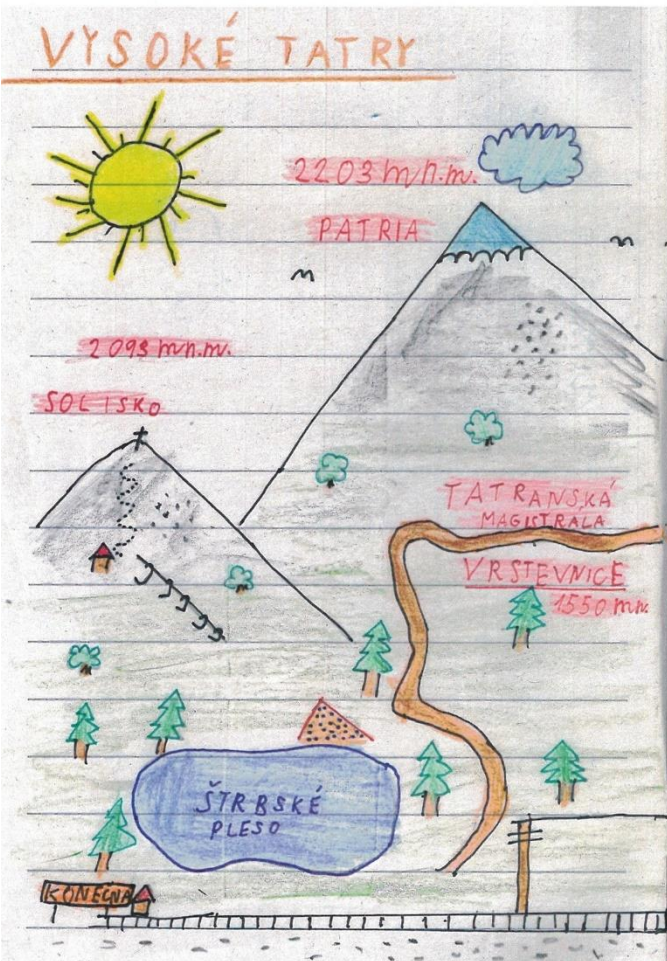 VYSOKÉ TATRY
2203 m n.m.
PATRIA
2093 m n.m.
SOLISKO
TATRANSKÁ
MAGISTRÁLA
VRSTEVNICE
1550 m n.
ŠTRBSKÉ
PLESO
KONEČNÁ